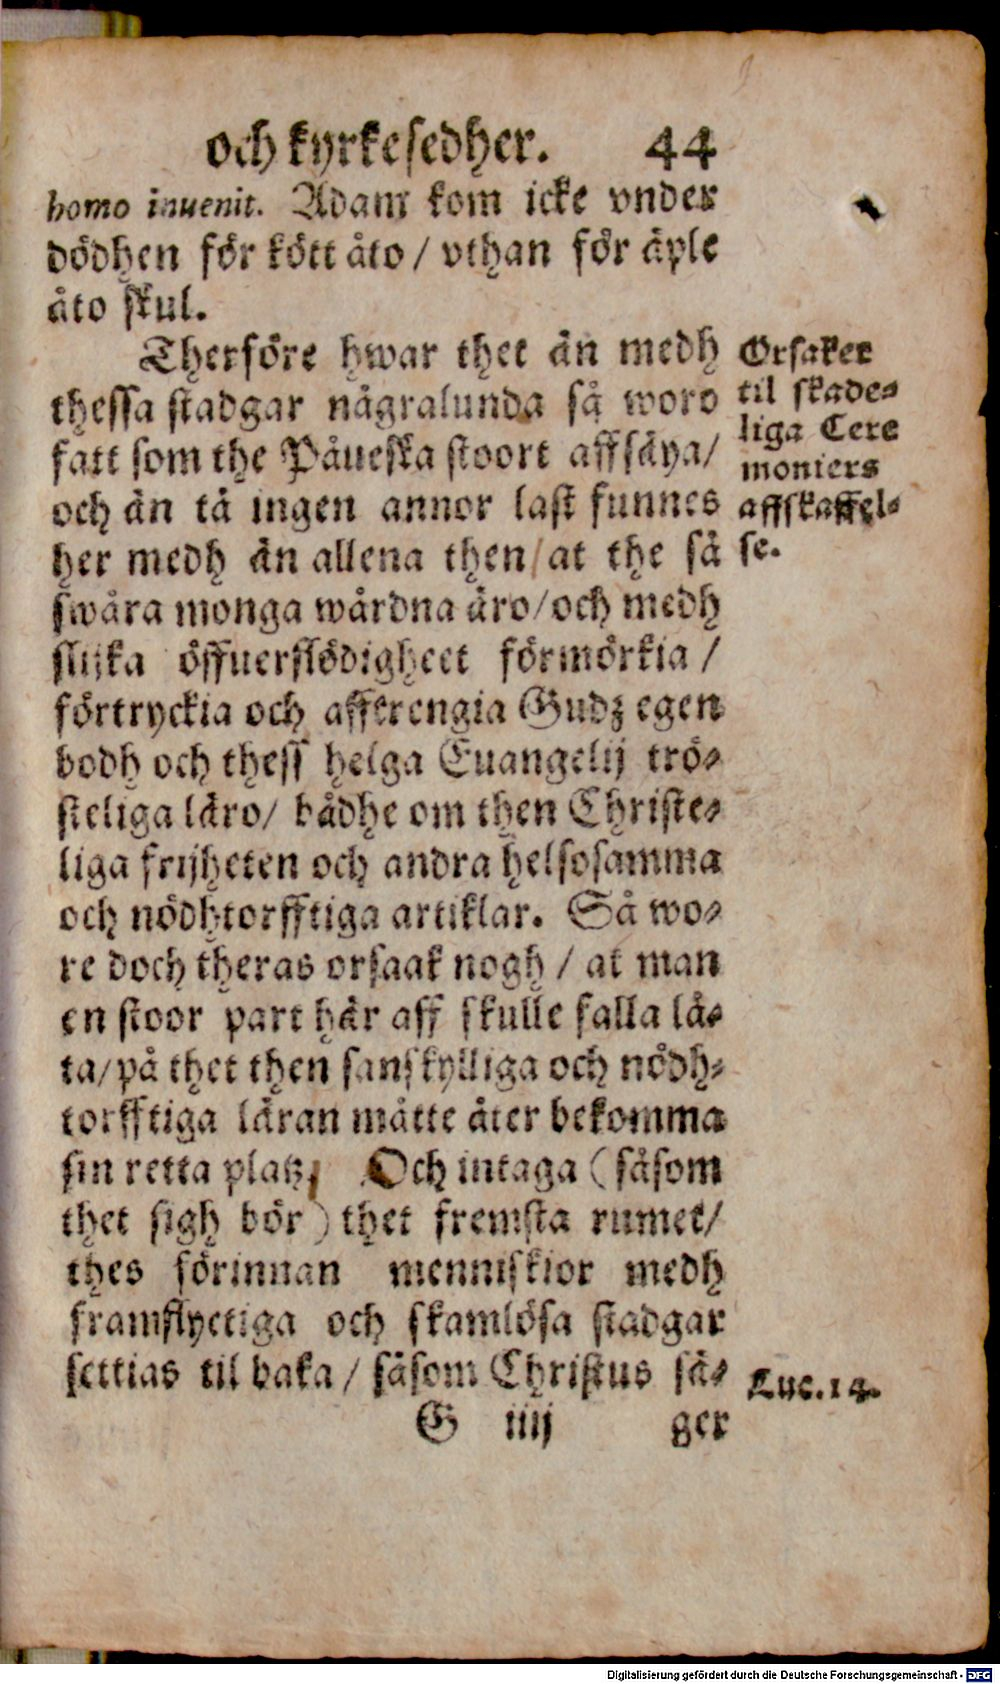 och kyrkesedher. 44
homo inuenit. Adam kom icke vnder
dödhen för kött åto / vthan för äple
åto skul.
Therföre hwar thet än medh
thessa stadgar någralunda så woro
fatt som the Påueska stoort affsäya/
och än tå ingen annor last funnes
her medh än allena then/at the så
swåra monga wårdna äro/och medh
slijka öffuerflödigheet förmörkia /
förtryckia och afftrengia Gudz egen
bodh och thess helga Euangelij trö-
steliga läro/ bådhe om then Christe-
liga frijheten och andra helsosamma
och nödhtorfftiga artiklar. Så wo-
re doch theras orsaak nogh / at man
en stoor part här aff skulle falla lå-
ta/på thet then sanskylliga och nödh-
torfftiga läran måtte åter bekomma
sin retta platz, Och intaga (såsom
thet sigh bör) thet fremsta rumet/
thes förinnan menniskior medh
framflyctiga och skamlösa stadgar
settias til baka / såsom Christus sä-
G iiij ger
Orsaker
til skade-
liga Cere
moniers
affskaffel-
se.
Luc. 14.
Digitalisierung gefördert durch die Deutsche Forschungsgemeinschaft - DFG